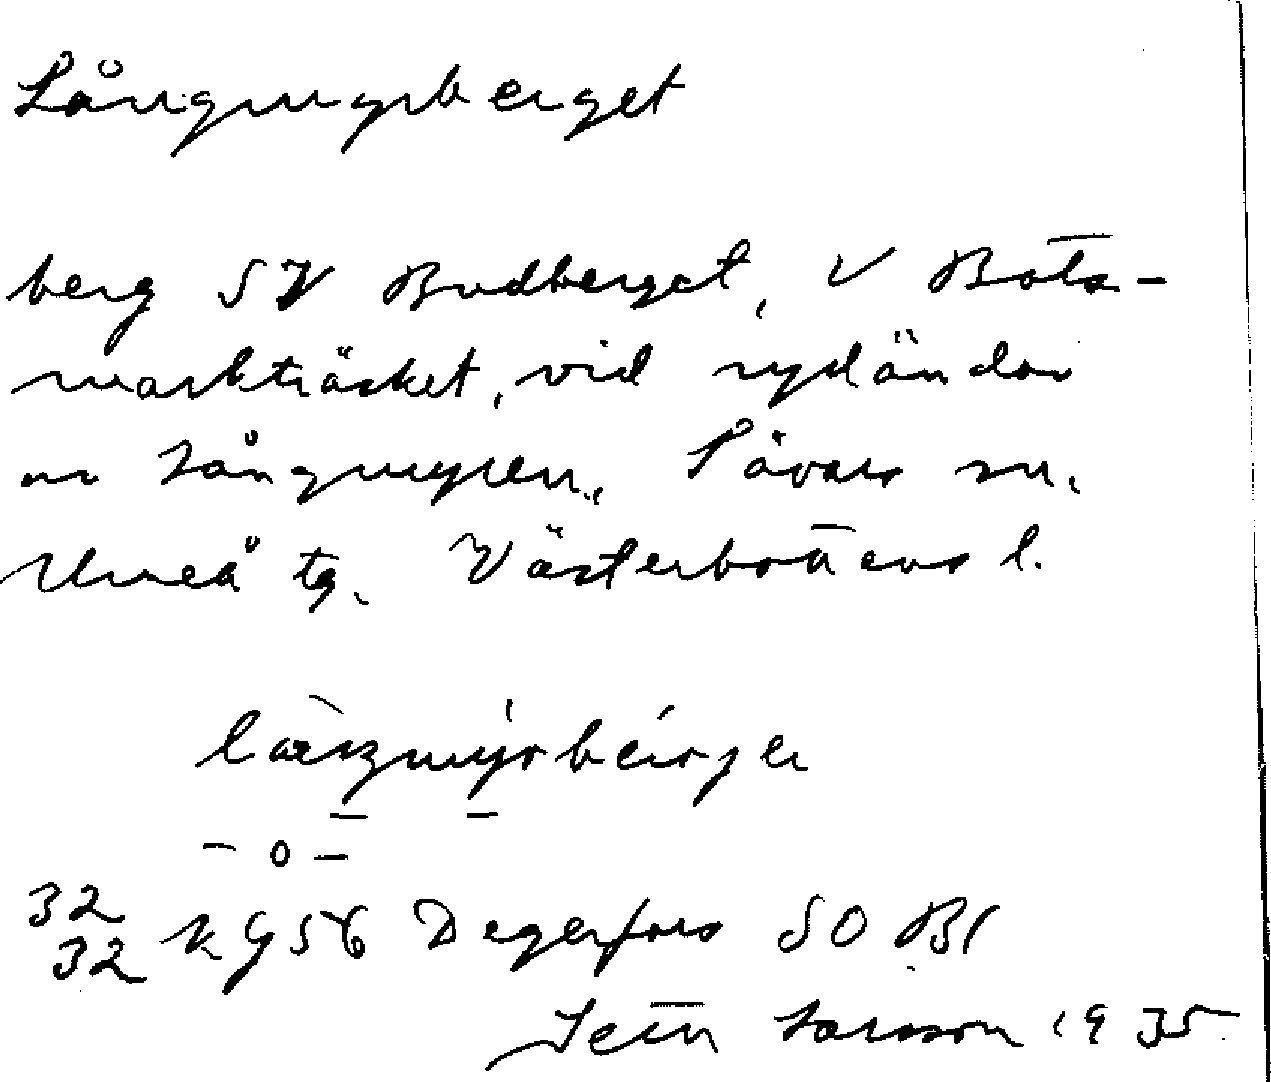 Långmyrberget
berg SV Budberget, V Bots-
markträsket, vid sydändan
av Långmyren, Sävars sn.
Umeå tg. Västerbottens l.
- o -
32
32 K 956 Degerfors SO B1
Larsson 1935